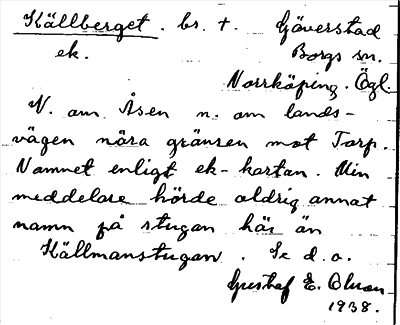 Källberget . br. +. Göverstad
ek. Borgs sn.
Norrköping. Ögl.
V. om Åsen n. om lands-
vägen nära gränsen mot Torp.
Namnet enligt ek-kartan. Min
meddelare hörde aldrig annat
namn på stugan här än
Källmanstugan. Se d. o.
Gustaf E. Olsson
1938.